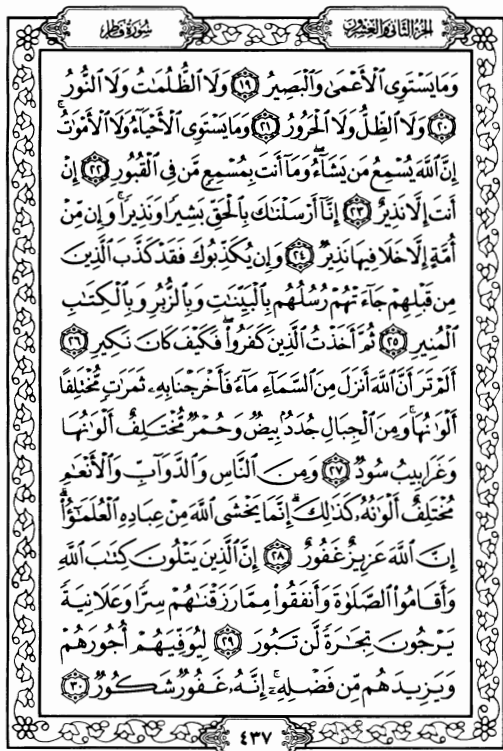 الجزء الثاني والعشرون سورة فاطر
وَمَا يَسْتَوِى ٱلْأَعْمَىٰ وَٱلْبَصِيرُ ١٩ وَلَا ٱلظُّلُمَـٰتُ وَلَا ٱلنُّورُ
٢٠ وَلَا ٱلظِّلُّ وَلَا ٱلْحَرُورُ ٢١ وَمَا يَسْتَوِى ٱلْأَحْيَآءُ وَلَا ٱلْأَمْوَٰتُ ۚ
إِنَّ ٱللَّهَ يُسْمِعُ مَن يَشَآءُ ۖ وَمَآ أَنتَ بِمُسْمِعٍ مَّن فِى ٱلْقُبُورِ ٢٢ إِنْ
أَنتَ إِلَّا نَذِيرٌ ٢٣ إِنَّآ أَرْسَلْنَـٰكَ بِٱلْحَقِّ بَشِيرًا وَنَذِيرًا ۚ وَإِن مِّنْ
أُمَّةٍ إِلَّا خَلَا فِيهَا نَذِيرٌ ٢٤ وَإِن يُكَذِّبُوكَ فَقَدْ كَذَّبَ ٱلَّذِينَ
مِن قَبْلِهِمْ جَآءَتْهُمْ رُسُلُهُم بِٱلْبَيِّنَـٰتِ وَبِٱلزُّبُرِ وَبِٱلْكِتَـٰبِ
ٱلْمُنِيرِ ٢٥ ثُمَّ أَخَذْتُ ٱلَّذِينَ كَفَرُوا۟ ۖ فَكَيْفَ كَانَ نَكِيرِ ٢٦
أَلَمْ تَرَ أَنَّ ٱللَّهَ أَنزَلَ مِنَ ٱلسَّمَآءِ مَآءً فَأَخْرَجْنَا بِهِۦ ثَمَرَٰتٍ مُّخْتَلِفًا
أَلْوَٰنُهَا ۚ وَمِنَ ٱلْجِبَالِ جُدَدٌۢ بِيضٌ وَحُمْرٌ مُّخْتَلِفٌ أَلْوَٰنُهَا
وَغَرَابِيبُ سُودٌ ٢٧ وَمِنَ ٱلنَّاسِ وَٱلدَّوَآبِّ وَٱلْأَنْعَـٰمِ
مُخْتَلِفٌ أَلْوَٰنُهُۥ كَذَٰلِكَ ۗ إِنَّمَا يَخْشَى ٱللَّهَ مِنْ عِبَادِهِ ٱلْعُلَمَـٰٓؤُا۟ ۗ
إِنَّ ٱللَّهَ عَزِيزٌ غَفُورٌ ٢٨ إِنَّ ٱلَّذِينَ يَتْلُونَ كِتَـٰبَ ٱللَّهِ
وَأَقَامُوا۟ ٱلصَّلَوٰةَ وَأَنفَقُوا۟ مِمَّا رَزَقْنَـٰهُمْ سِرًّا وَعَلَانِيَةً
يَرْجُونَ تِجَـٰرَةً لَّن تَبُورَ ٢٩ لِيُوَفِّيَهُمْ أُجُورَهُمْ
وَيَزِيدَهُم مِّن فَضْلِهِۦٓ ۚ إِنَّهُۥ غَفُورٌ شَكُورٌ ٣٠
٤٣٧